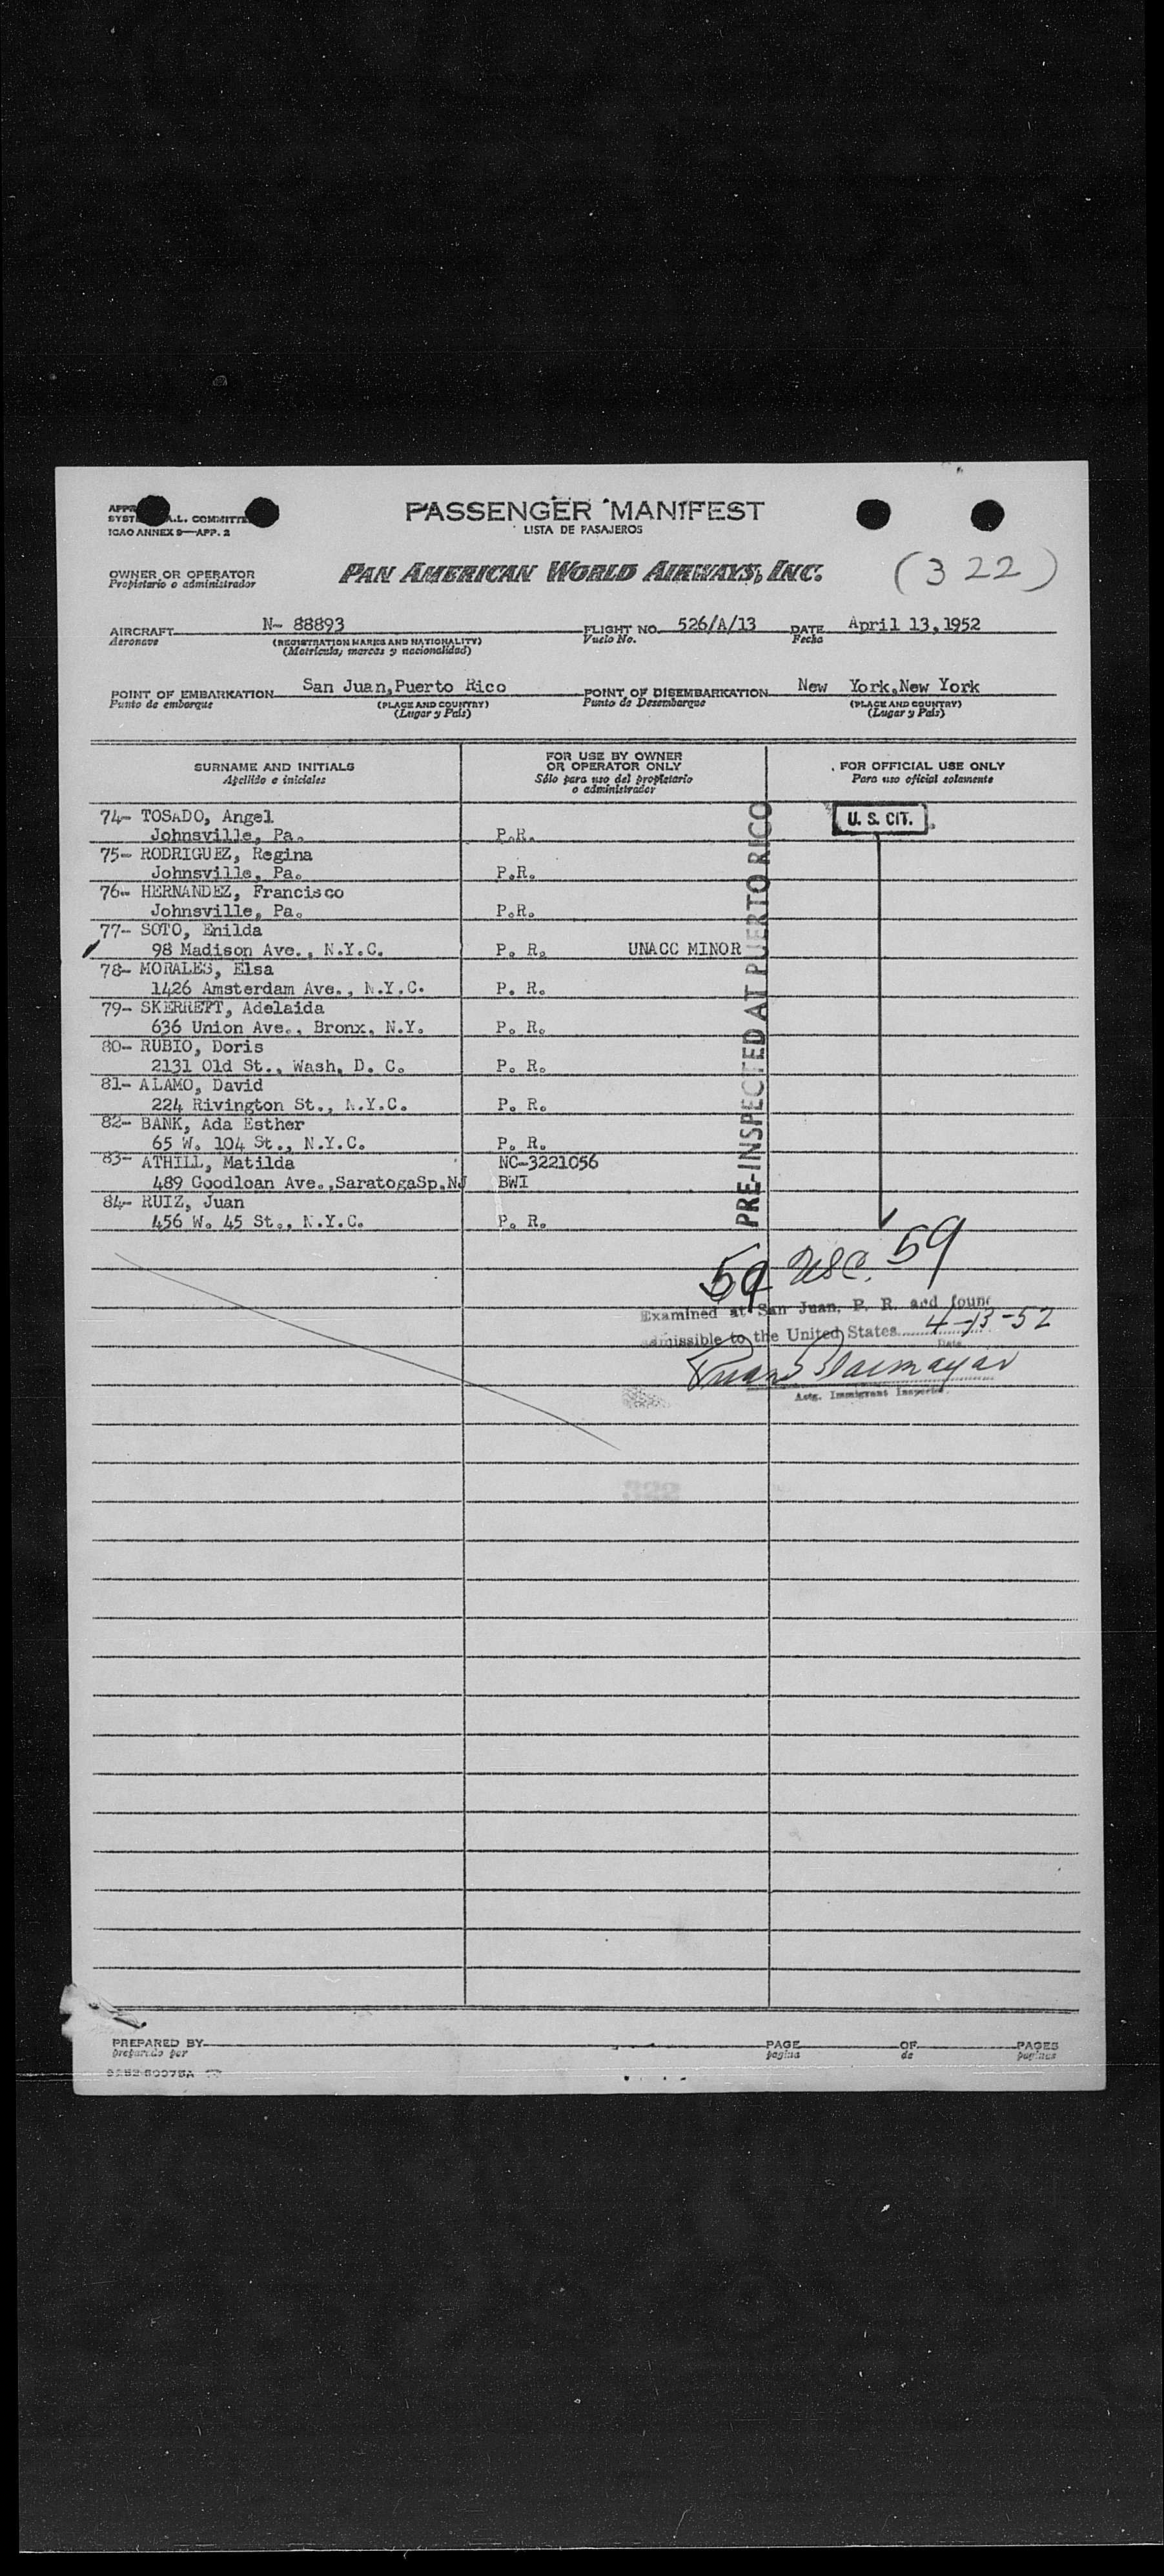 PASSENGER MANIFEST
LISTA DE PASAJEROS
A.L. COMMITTE
ICAO ANNEX 9—APP. 2
OWNER OR OPERATOR
Propietario o administrador
PAN AMERICAN WORLD AIRWAYS, INC.
(322)
AIRCRAFT N- 88893 FLIGHT NO. 526/A/13 DATE April 13,1952
Aeronave (REGISTRATION MARKS AND NATIONALITY) Vuelo No. Fecha
(Matricula, marcas y nacionalidad)
POINT OF EMBARKATION San Juan,Puerto Rico POINT OF DISEMBARKATION New York,New York
Punto de embarque (PLACE AND COUNTRY) Punto de Desembarque (PLACE AND COUNTRY)
(Lugar y Pais) (Lugar y Pais)
SURNAME AND INITIALS
Apellido e iniciales
FOR USE BY OWNER
OR OPERATOR ONLY
Sólo para uso del propietario
o administrador
FOR OFFICIAL USE ONLY
Para uso oficial solamente
74- TOSADO, Angel
Johnsville, Pa. P.R.
U. S. CIT.
75- RODRIGUEZ, Regina
Johnsville, Pa. P.R.
76- HERNANDEZ, Francisco
Johnsville, Pa. P.R.
77- SOTO, Enilda
98 Madison Ave., N.Y.C. P. R. UNACC MINOR
78- MORALES, Elsa
1426 Amsterdam Ave., N.Y.C. P. R.
79- SKERRETT, Adelaida
636 Union Ave., Bronx, N.Y. P. R.
80- RUBIO, Doris
2131 Old St., Wash, D. C. P. R.
81- ALAMO, David
224 Rivington St., N.Y.C. P. R.
82- BANK, Ada Esther
65 W. 104 St., N.Y.C. P. R.
83- ATHILL, Matilda NC-3221056
489 Goodloan Ave.,SaratogaSp,NJ BWI
84- RUIZ, Juan
456 W. 45 St., N.Y.C. P. R.
PRE-INSPECTED AT PUERTO RICO
59 USC. 59
Examined at San Juan, P. R. and found
admissible to the United States 4-13-52
Date
Actg. Immigrant Inspector
PREPARED BY PAGE OF PAGES
preparado por pagina de paginas